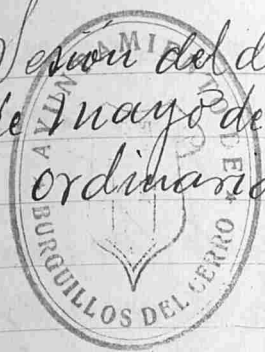 Sesión del d
de Mayo de
ordinaria
AYUNTAMIENTO DE
BURGUILLOS DEL CERRO